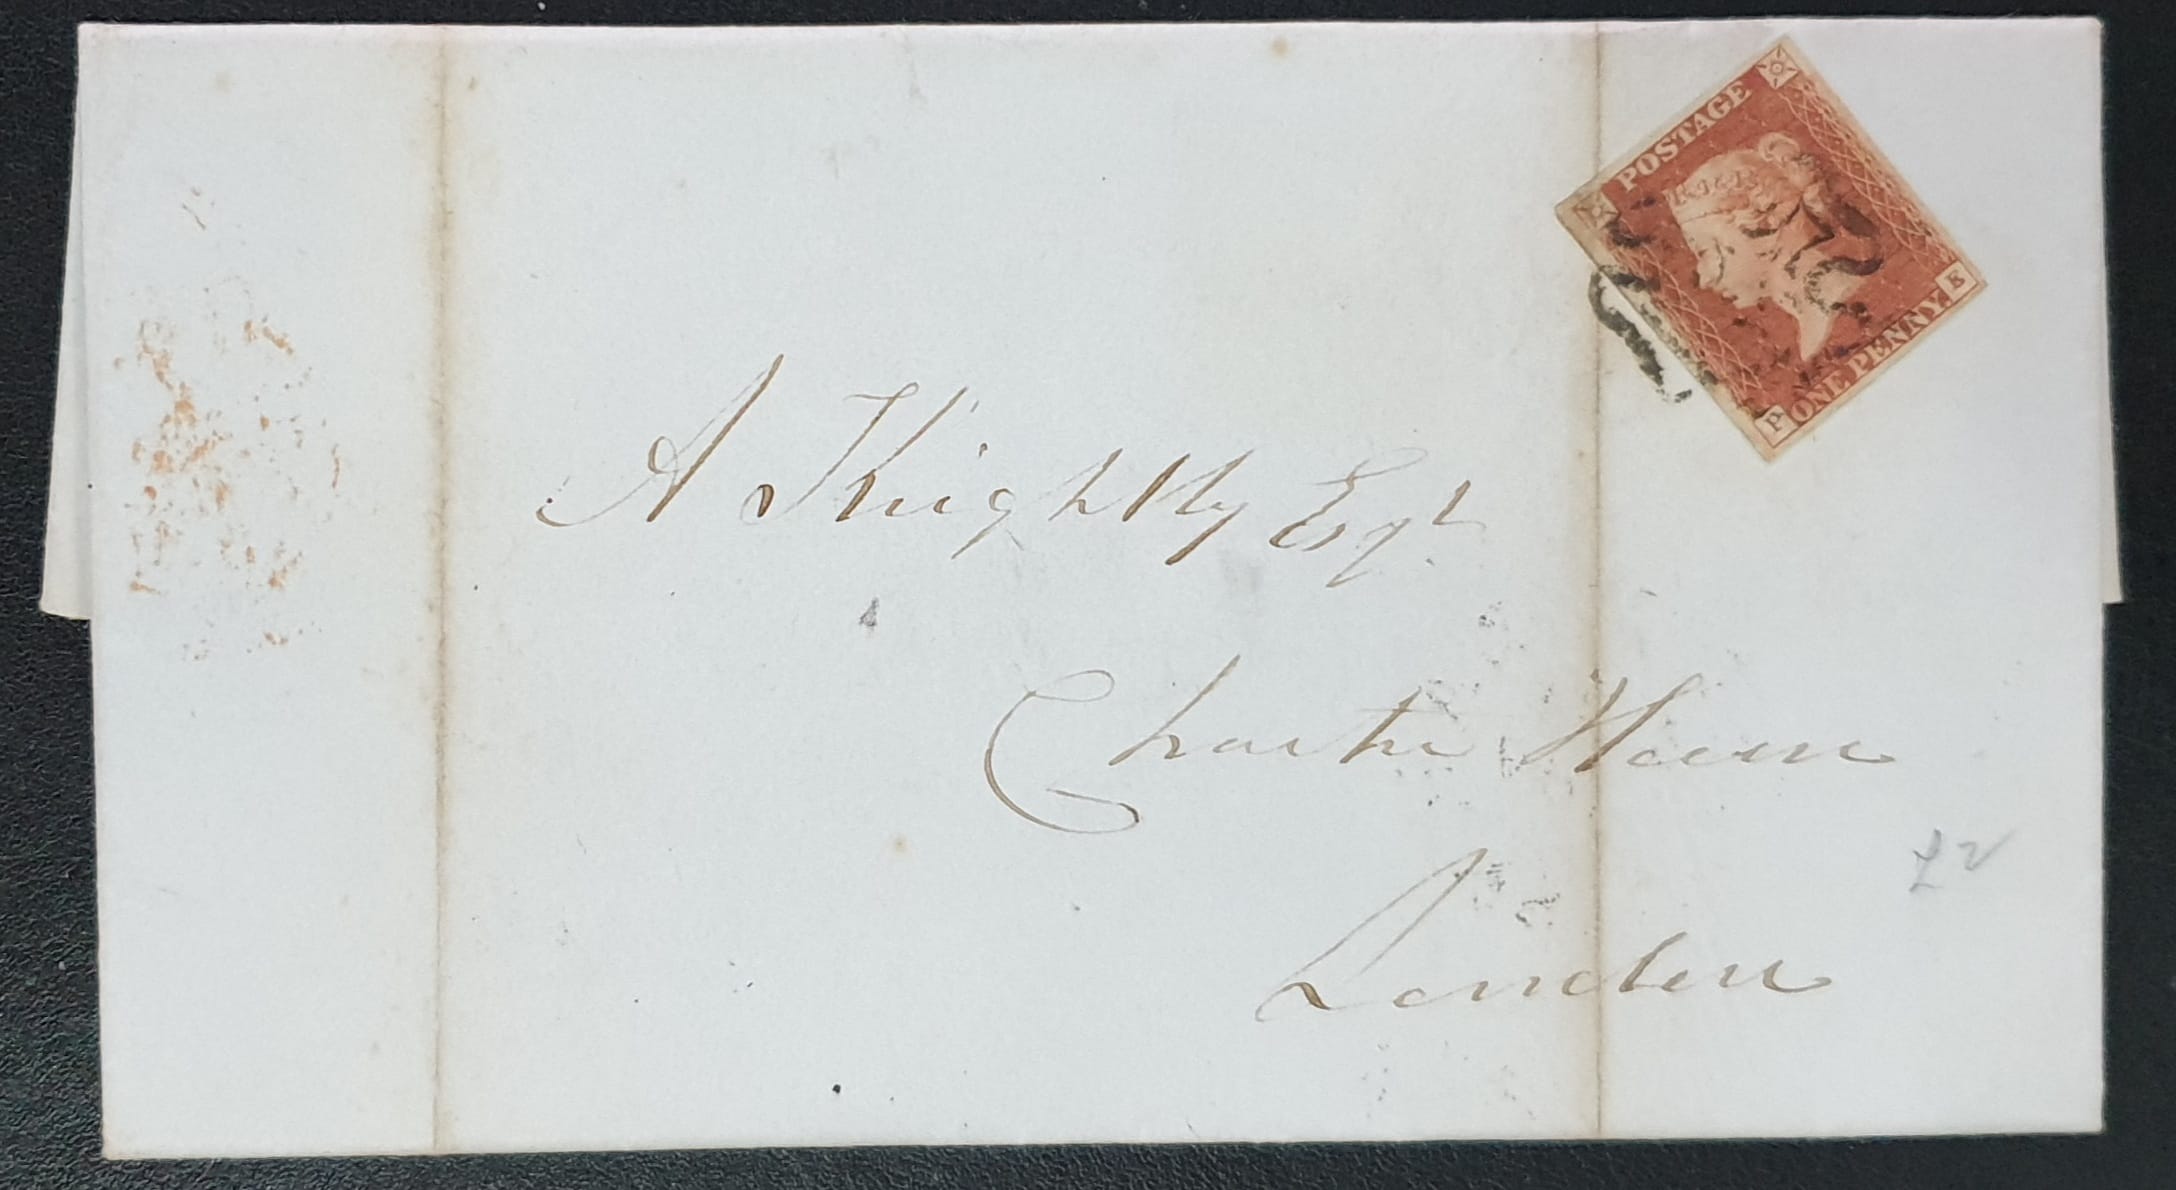 POSTAGE
ONE PENNY
P E
A Knightly Esqr
Charter House
London
£2